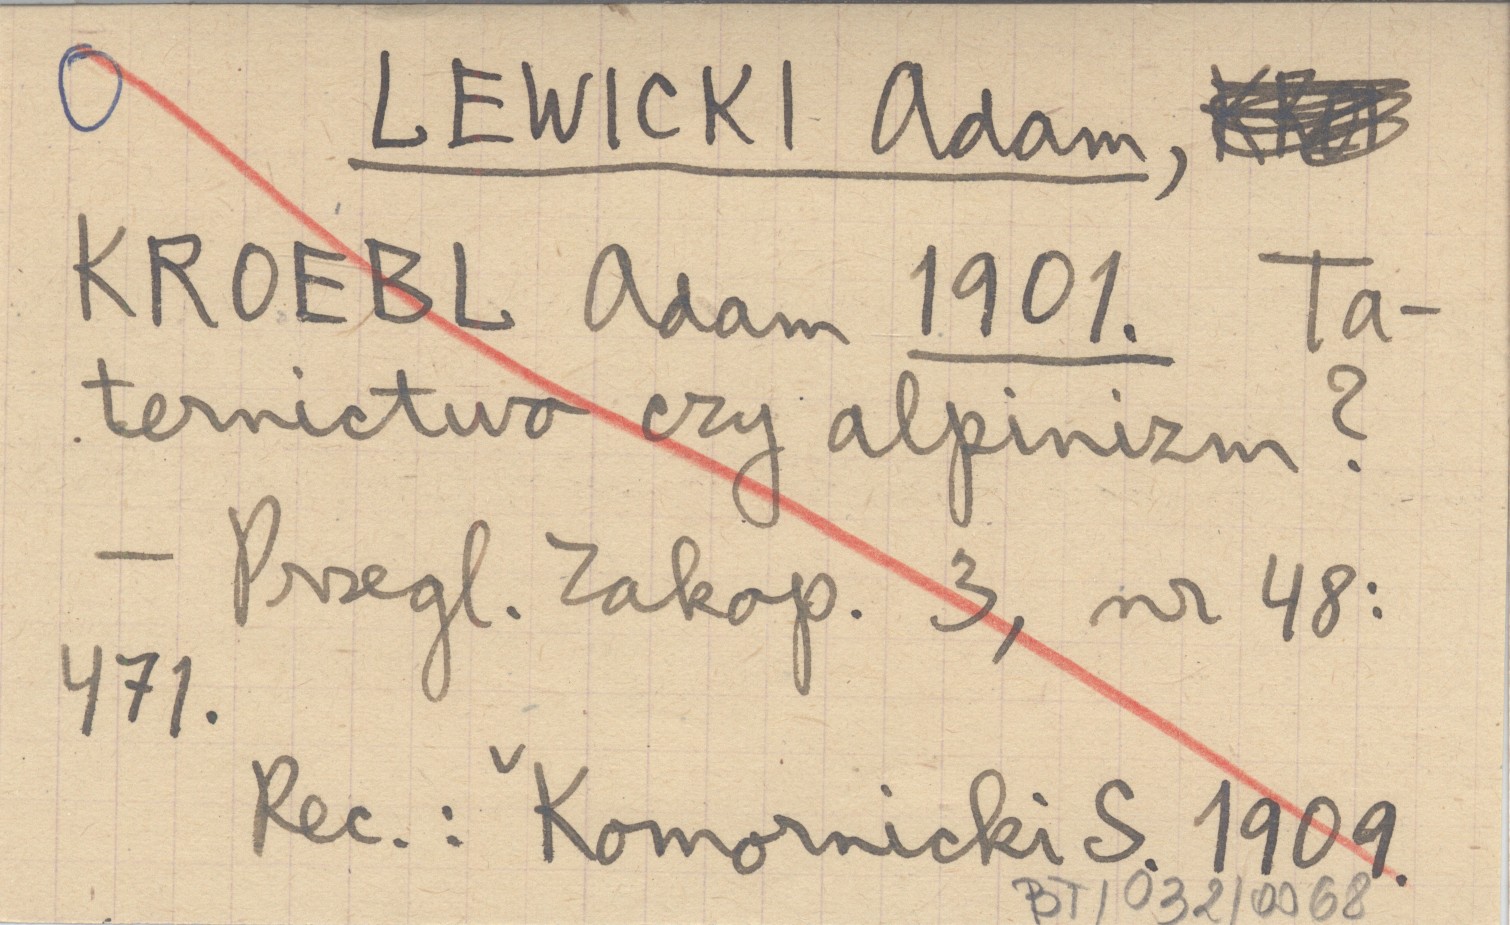 O
LEWICKI Adam,
KROEBL Adam 1901. Ta-
ternictwo czy alpinizm?
— Przegl. Zakop. 3, nr 48:
471.
Rec.: Komornicki S. 1909.
BT/032/0068